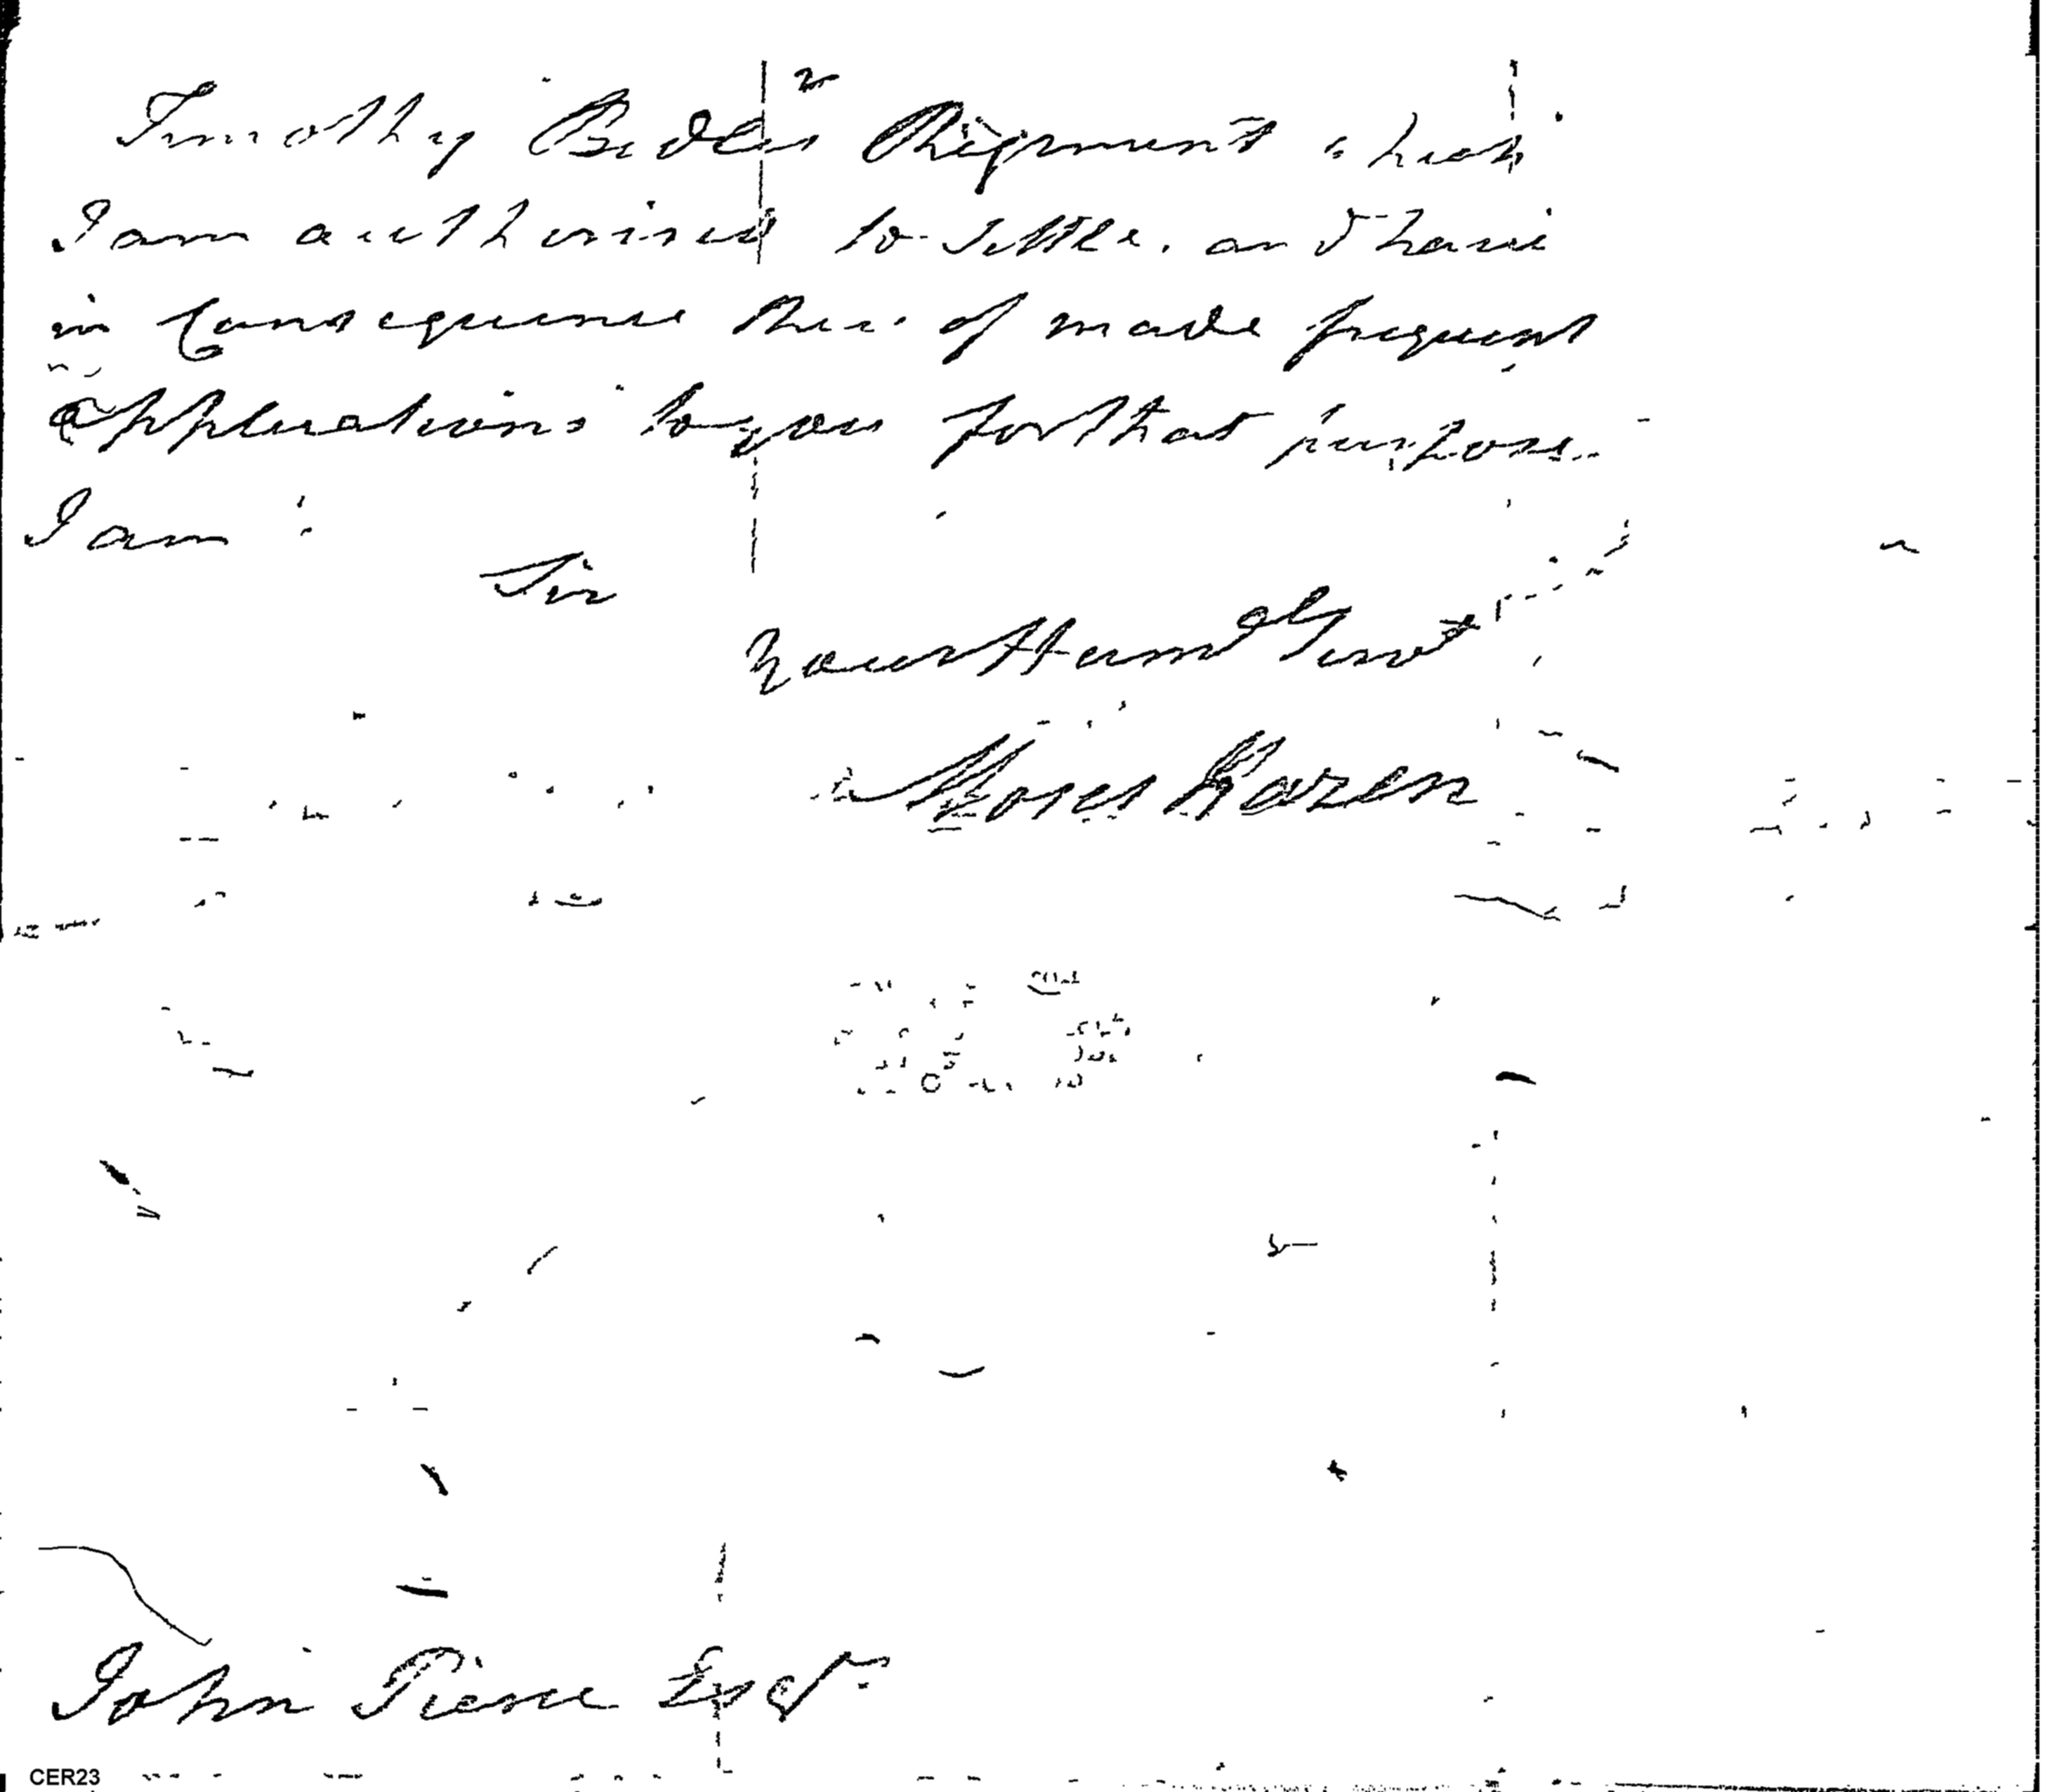 2
Timothy Bedles Regiment which
I am authorised to settle. and have
in Consequence there of made frequent
applications to you for that purpose.
I am
Sir
your Humbl Servt
Moses Hazen
John Pierce Esqr.
CER23